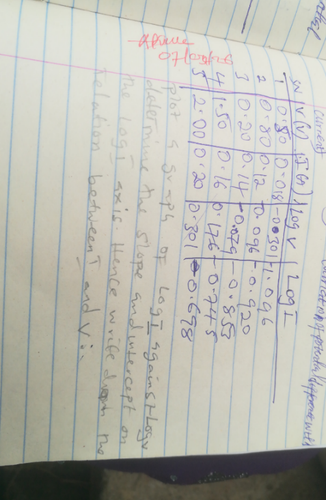 Current
S/N | V(V) | I(A) | log V | Log I
1 | 0.50 | 0.08 | -0.301 | -1.096
2 | 0.80 | 0.12 | -0.096 | -0.920
3 | 0.20 | 0.14 | -0.079 | -0.853
4 | 1.50 | 0.16 | 0.176 | -0.745
5 | 2.00 | 0.20 | 0.301 | -0.698
plot a graph of Log I against Log v
determine the slope and intercept on
the log I axis Hence write down the
relation between I and V